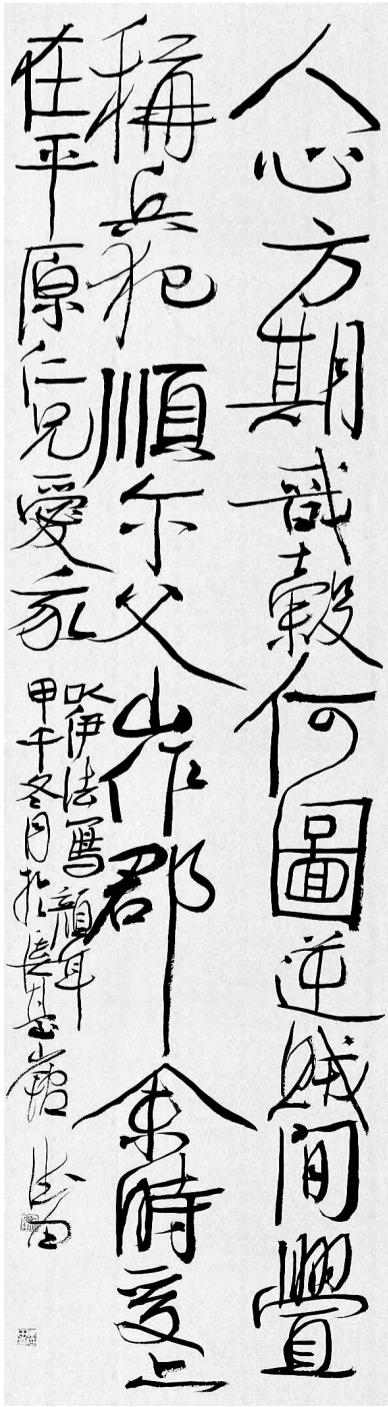 人心方期戩穀何圖逆賊間釁
稱兵犯順尔父山作郡余時受上
在平原仁兄愛我
以伊法寫顏耳
甲午冬月於長